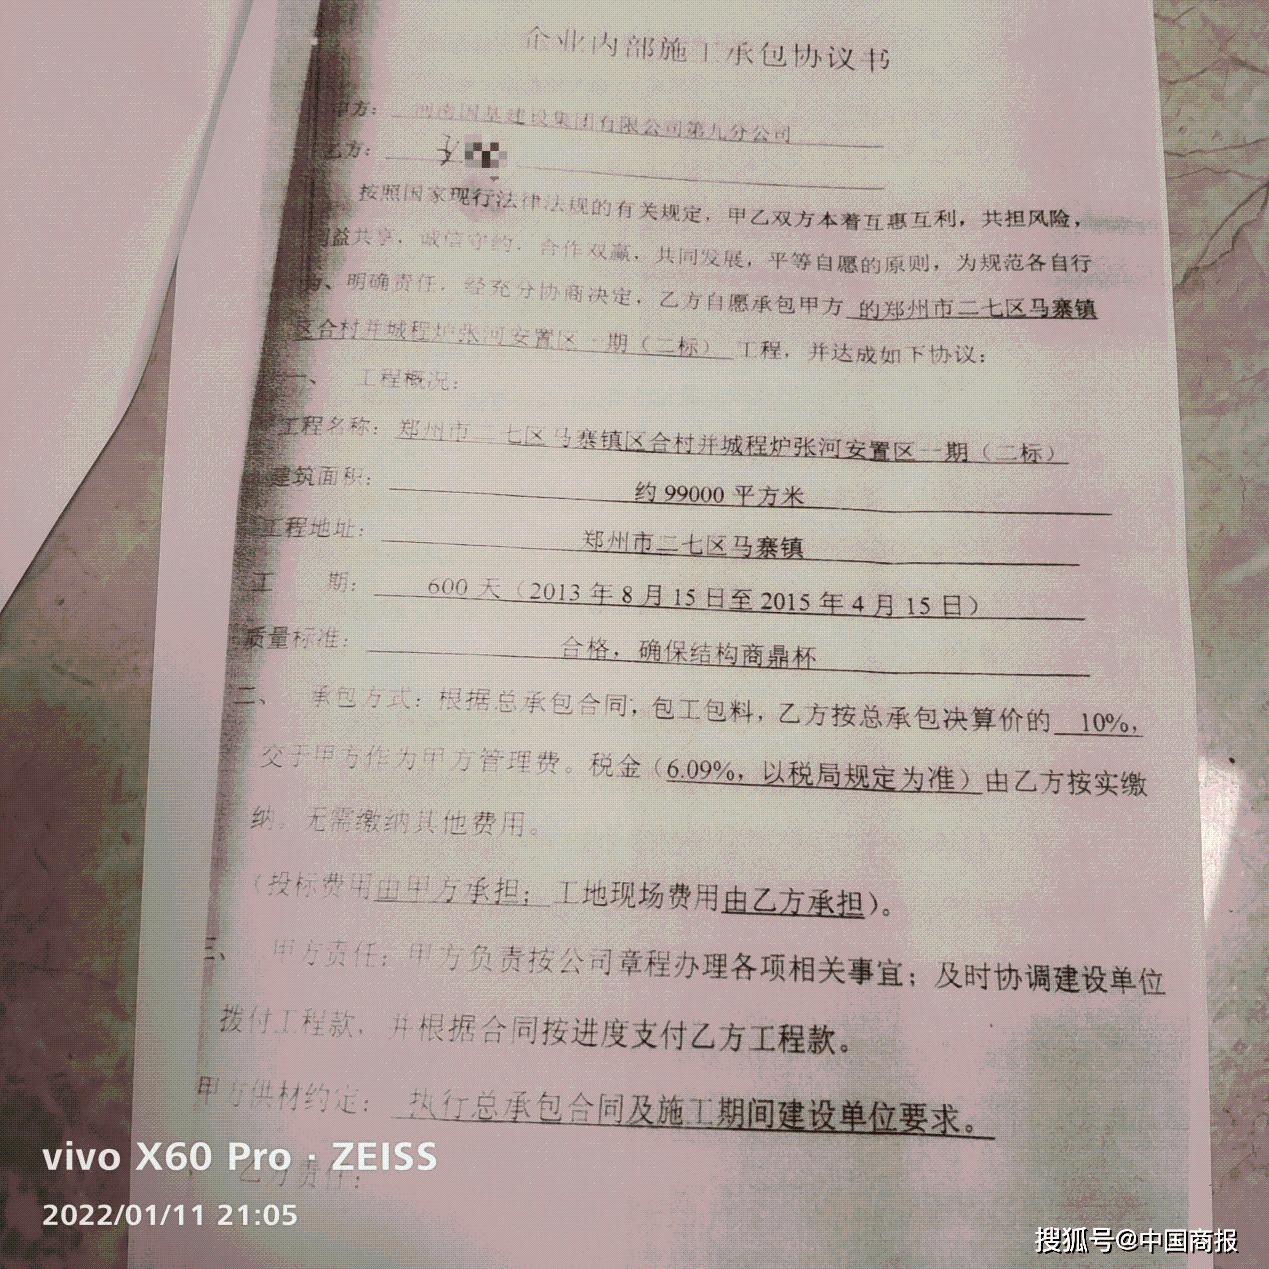 企业内部施工承包协议书
甲方：河南国基建设集团有限公司第九分公司
乙方：
按照国家现行法律法规的有关规定，甲乙双方本着互惠互利，共担风险，
利益共享，诚信守约，合作双赢，共同发展，平等自愿的原则，为规范各自行
为、明确责任，经充分协商决定，乙方自愿承包甲方 的郑州市二七区马寨镇
区合村并城程炉张河安置区一期（二标） 工程，并达成如下协议：
一、 工程概况：
工程名称：郑州市二七区马寨镇区合村并城程炉张河安置区一期（二标）
建筑面积： 约 99000 平方米
工程地址： 郑州市二七区马寨镇
工 期： 600 天（2013 年 8 月 15 日至 2015 年 4 月 15 日）
质量标准： 合格，确保结构商鼎杯
二、 承包方式：根据总承包合同，包工包料，乙方按总承包决算价的 10%，
交于甲方作为甲方管理费。税金（6.09%，以税局规定为准）由乙方按实缴
纳。无需缴纳其他费用。
（投标费用由甲方承担； 工地现场费用由乙方承担）。
三、 甲方责任：甲方负责按公司章程办理各项相关事宜；及时协调建设单位
拨付工程款，并根据合同按进度支付乙方工程款。
甲方供材约定： 执行总承包合同及施工期间建设单位要求。
乙方责任：
vivo X60 Pro · ZEISS
2022/01/11 21:05
搜狐号@中国商报